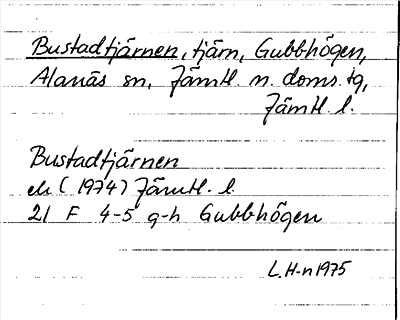 Bustadtjärnen, tjärn, Gubbhögen,
Alanäs sn, Jämtl. n. doms. tg,
Jämtl. l.
Bustadtjärnen
ek (1974) Jämtl. l.
21 F 4-5 g-h Gubbhögen
L.H-n 1975